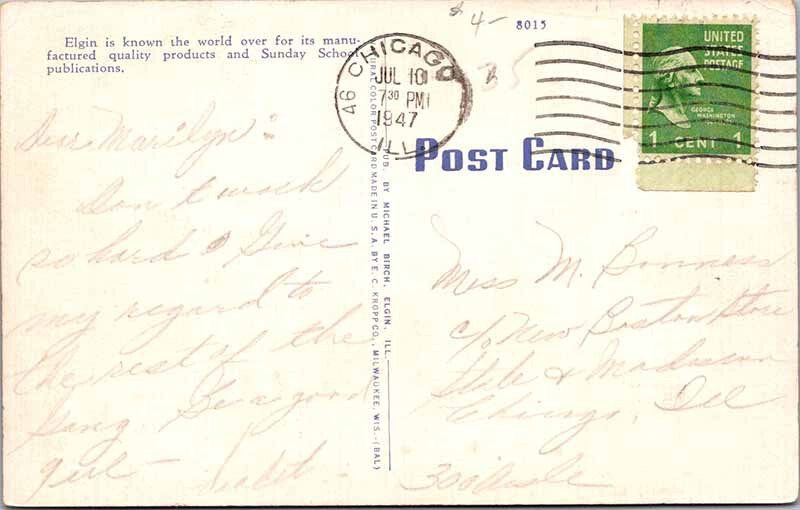 $4-
8015
Elgin is known the world over for its manu-
factured quality products and Sunday School
publications.
CHICAGO
46
JUL 10
7 30 PM
1947
ILL.
UNITED
STATES
POSTAGE
GEORGE
WASHINGTON
1 CENT 1
35
POST CARD
PUB. BY MICHAEL BIRCH, ELGIN, ILL.
URAL COLOR POST CARD MADE IN U. S. A. BY E. C. KROPP CO., MILWAUKEE, WIS.-(BAL)
Dear Marilyn:
Don't work
so hard. Give
my regard to
the rest of the
gang. Be a good
girl -
Miss M. Bonness
c/o New Boston Store
State & Madison
Chicago, Ill
300